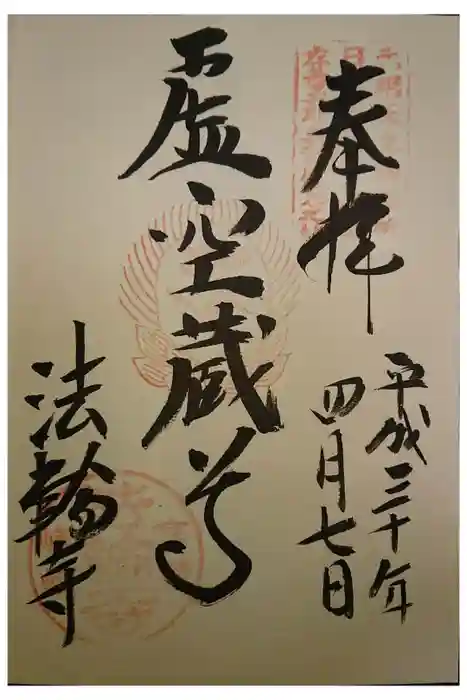 奉拝
平成三十年
四月七日
虚空蔵尊
法輪寺